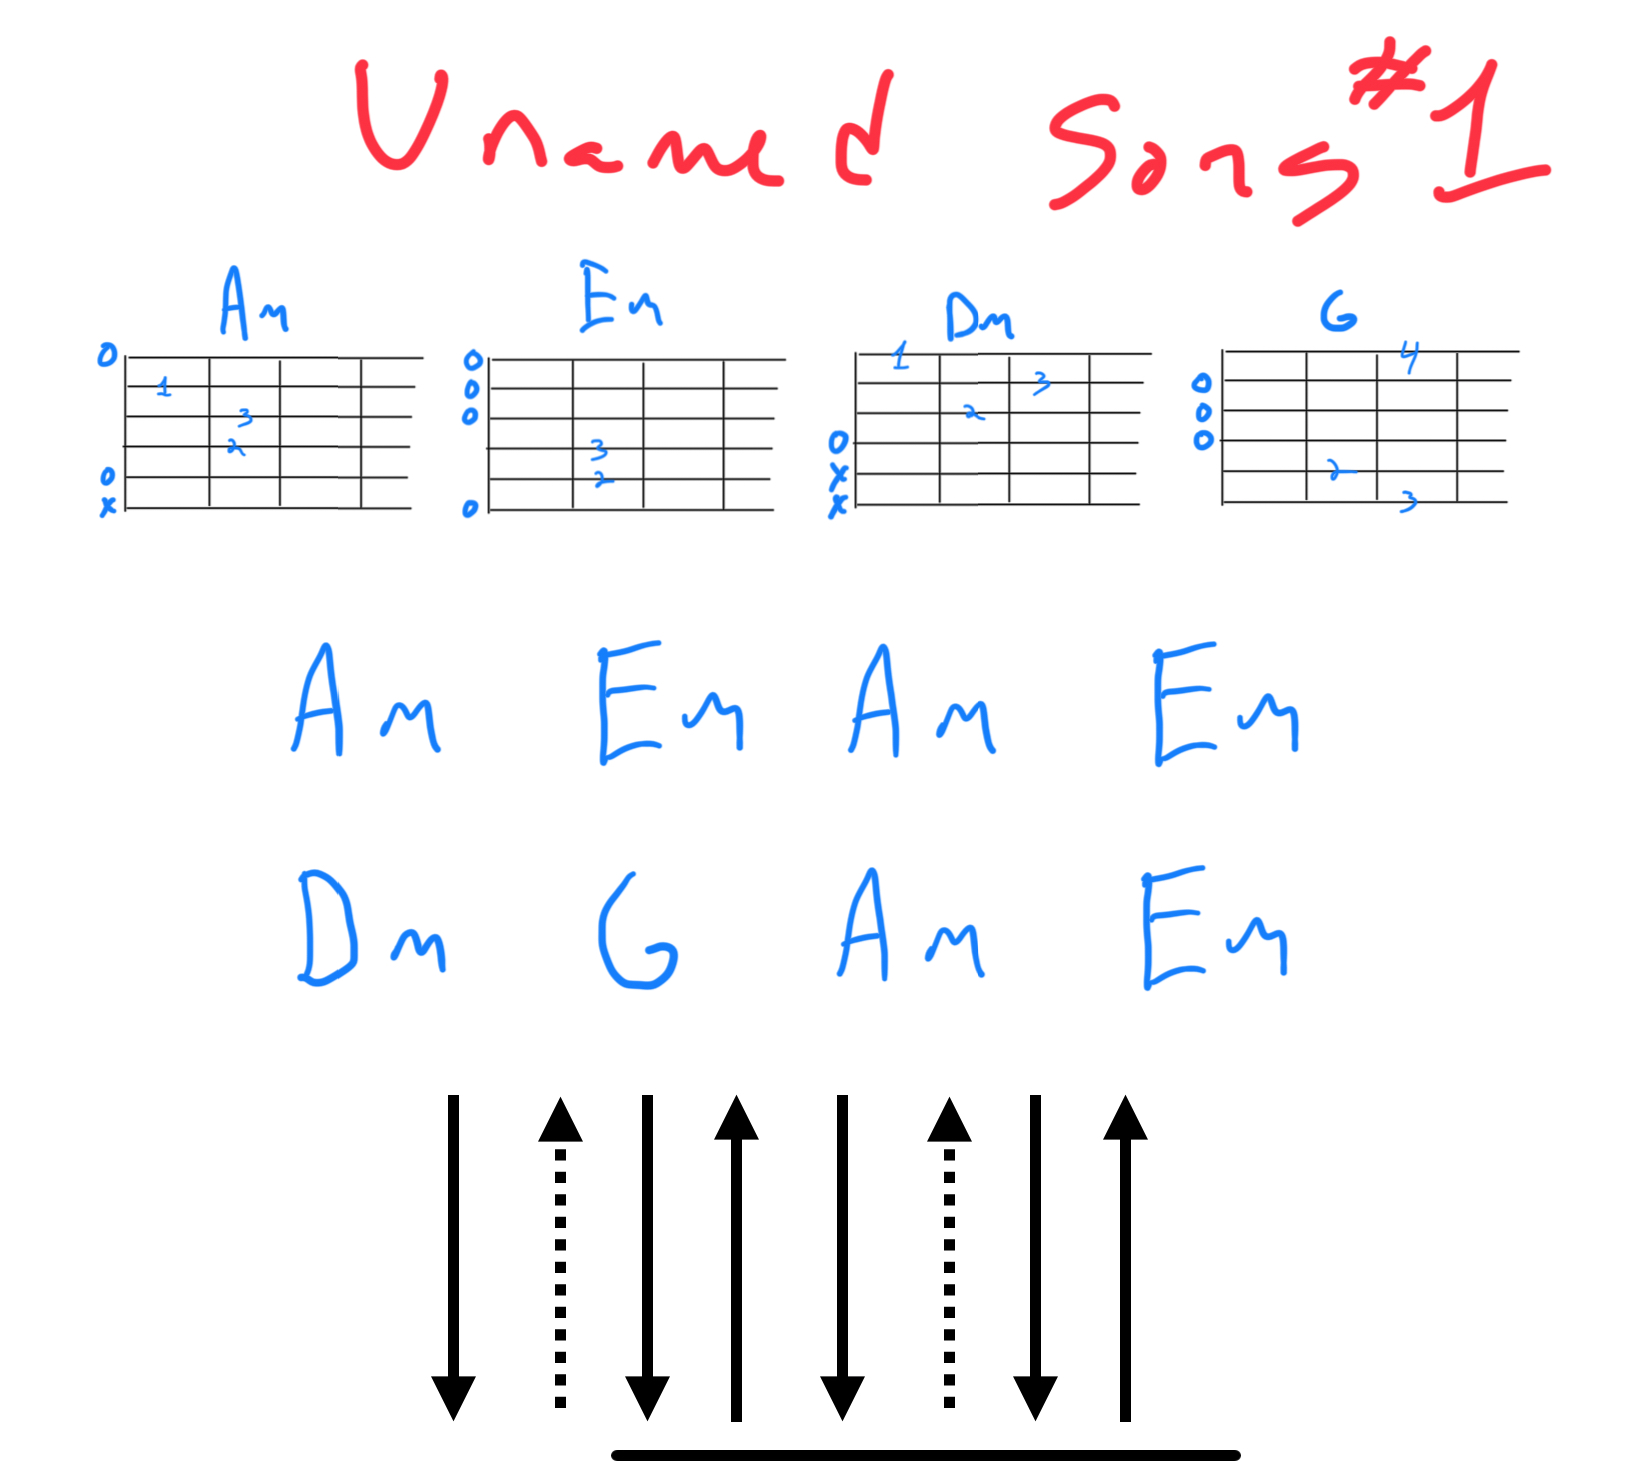 Unamed Song #1
Am Em Dm G
0 1 3 2 0 x
0 0 0 3 2 0
1 3 2 0 x x
4 0 0 0 2 3
Am Em Am Em
Dm G Am Em